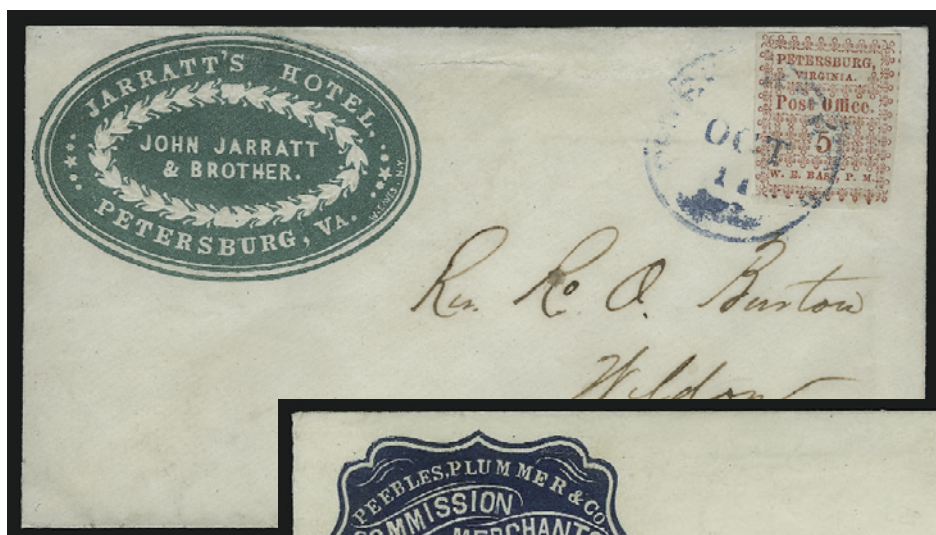 JARRATT'S HOTEL.
JOHN JARRATT
& BROTHER.
PETERSBURG, VA.
PETERSBURG,
VIRGINIA.
Post Office.
5
W. E. BASS, P. M.
OCT
11
Rev. R. O. Burton
Weldon
PEEBLES, PLUMMER & CO
COMMISSION
MERCHANTS